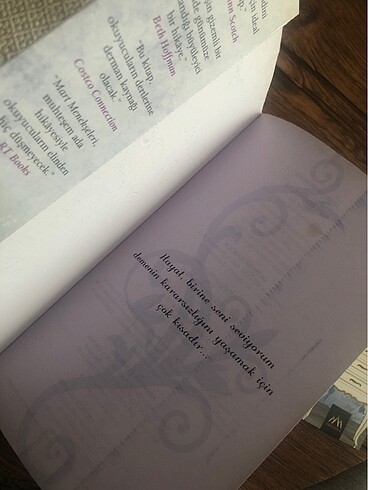 için ideal
Scotch
gizemli bir
günümüze
büyüleyici
bir hikâye."
Beth Hoffman
"Bu kitap,
okuyucuların dertlerine
derman kaynağı
olacak."
Costco Connection
"Mart Menekşeleri,
muhteşem ada
hikâyesiyle
okuyucuların elinden
hiç düşmeyecek."
RT Books
Hayat, birine seni seviyorum
demenin kararsızlığını yaşamak için
çok kısadır...